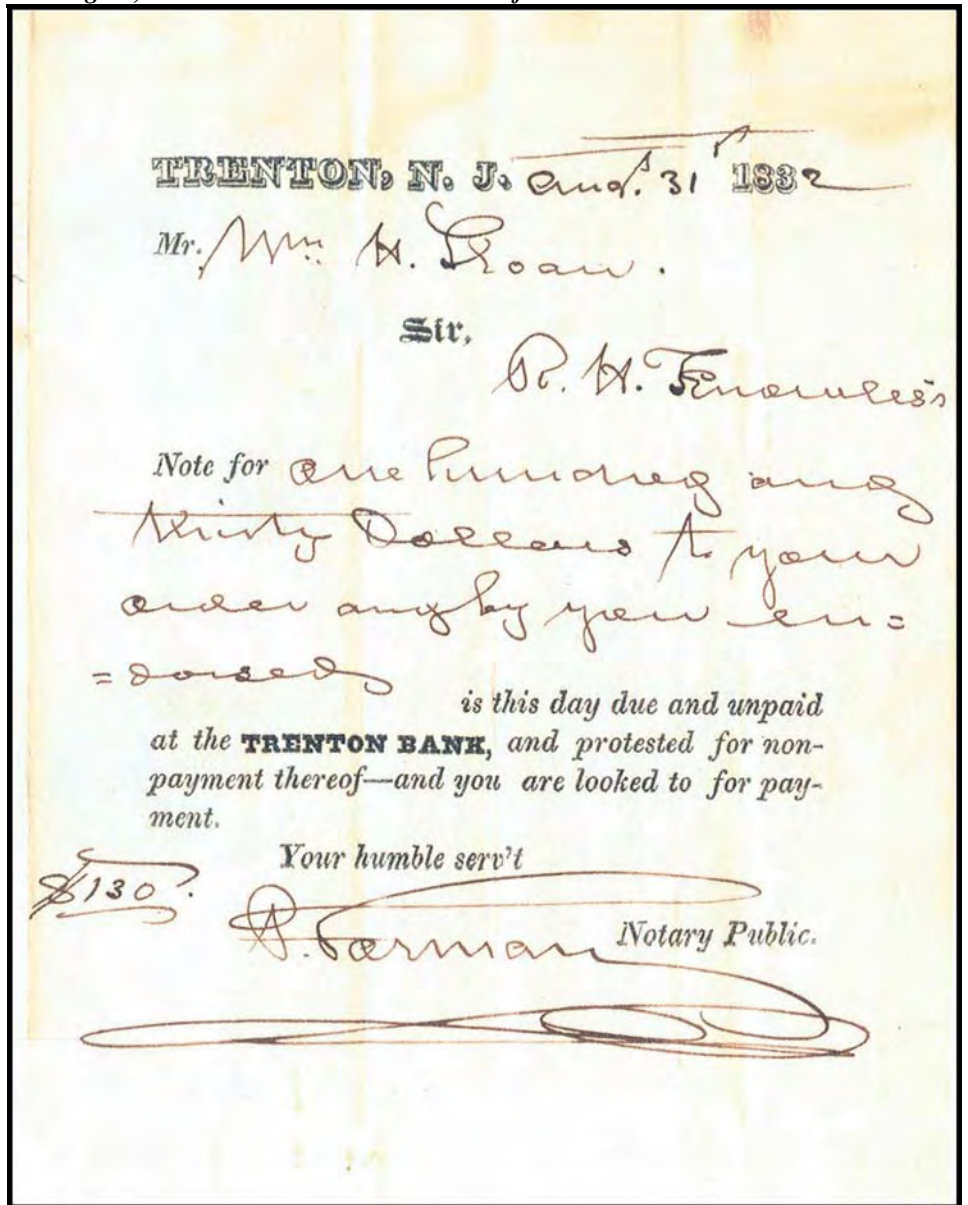 TRENTON, N. J. Aug. 31 1832
Mr. Wm. H. Sloan.
Sir,
R. H. Knowles's
Note for One hundred and
thirty Dollars to your
order and by you en=
=dorsed
is this day due and unpaid
at the TRENTON BANK, and protested for non-
payment thereof—and you are looked to for pay-
ment.
Your humble serv't
$130.
P. Forman Notary Public.